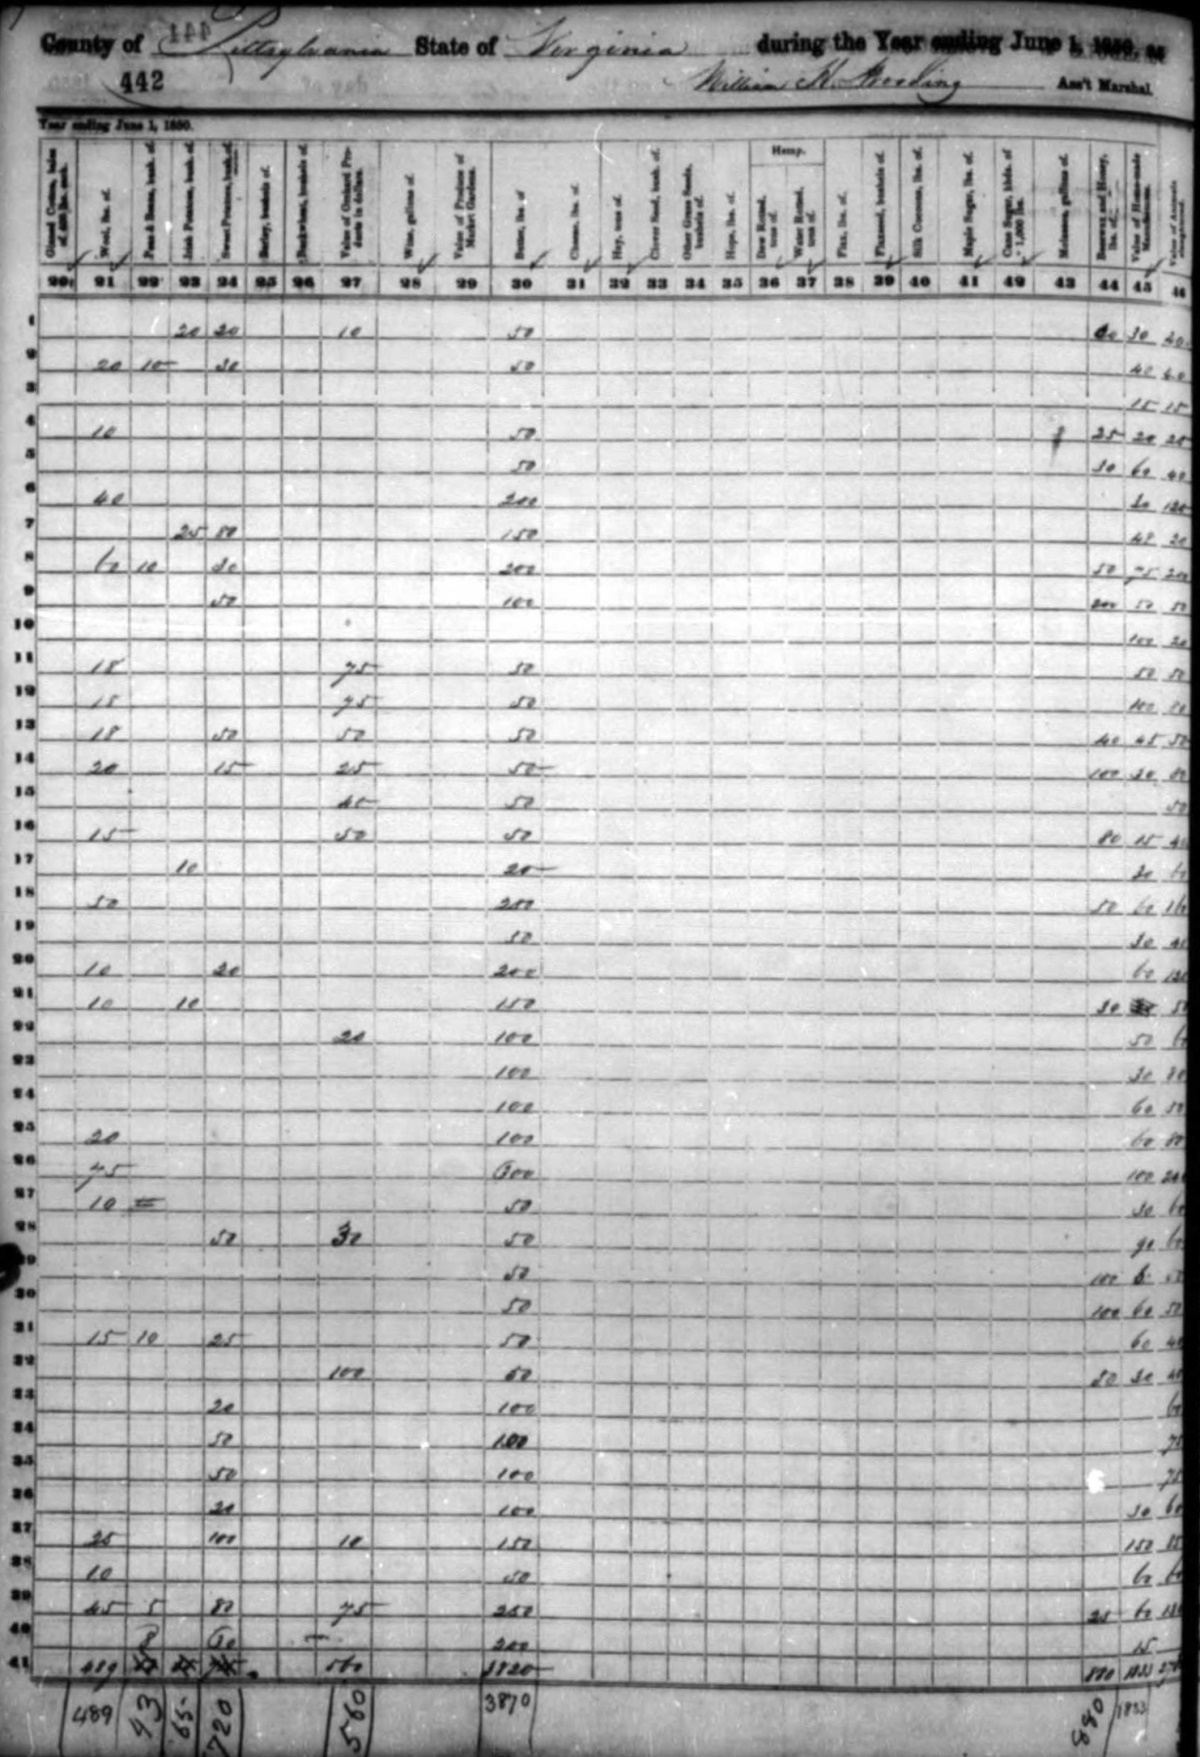 441
County of Pittsylvania State of Virginia during the Year ending June 1, 1850, as
442 William H. Wooding Ass't Marshal.
Year ending June 1, 1850.
Ginned Cotton, bales of 400 lbs. each. Wool, lbs. of. Peas & Beans, bush. of. Irish Potatoes, bush. of. Sweet Potatoes, bush. of. Barley, bushels of. Buckwheat, bushels of. Value of Orchard Products in dollars. Wine, gallons of. Value of Produce of Market Gardens. Butter, lbs. of Cheese, lbs. of. Hay, tons of. Clover Seed, bush. of. Other Grass Seeds, bushels of. Hops, lbs. of. Hemp. Dew Rotted, tons of. Water Rotted, tons of. Flax, lbs. of. Flaxseed, bushels of. Silk Cocoons, lbs. of. Maple Sugar, lbs. of. Cane Sugar, hhds. of 1,000 lbs. Molasses, gallons of. Beeswax and Honey, lbs. of. Value of Home-made Manufactures. Value of Animals slaughtered.
20 21 22 23 24 25 26 27 28 29 30 31 32 33 34 35 36 37 38 39 40 41 42 43 44 45 46
1 20 20 10 50 30 40
2 20 10 30 50 40 60
3 15 15
4 10 50 25 20 25
5 50 30 60 40
6 40 200 30 120
7 25 80 150 20
8 60 10 30 200 50 75 200
9 50 100 200 50 50
10 100 20
11 18 75 50 50 50
12 15 75 50 100 80
13 18 50 50 50 40 45 50
14 20 15 25 50 100 30 80
15 40 50 50
16 15 50 50 80 15 40
17 10 20 30 60
18 50 200 50 60
19 50 30 40
20 10 20 200 60 120
21 10 10 150 30 50
22 20 100 50 60
23 100 30 80
24 100 60 50
25 20 100 60 80
26 75 100
27 10 50 30 60
28 50 30 50 90 60
29 50 100
30 50 100 60 50
31 15 10 25 50 60 40
32 100 50 30 40
33 20 100
34 50 100
35 50 100 75
36 20 100 30 60
37 25 100 10 150 150 85
38 10 50 60 60
39 45 5 80 75 250 25 60
40 8 200 15
41 489 560 3820 880 1833
489 43 65 720 560 3870 880 1833